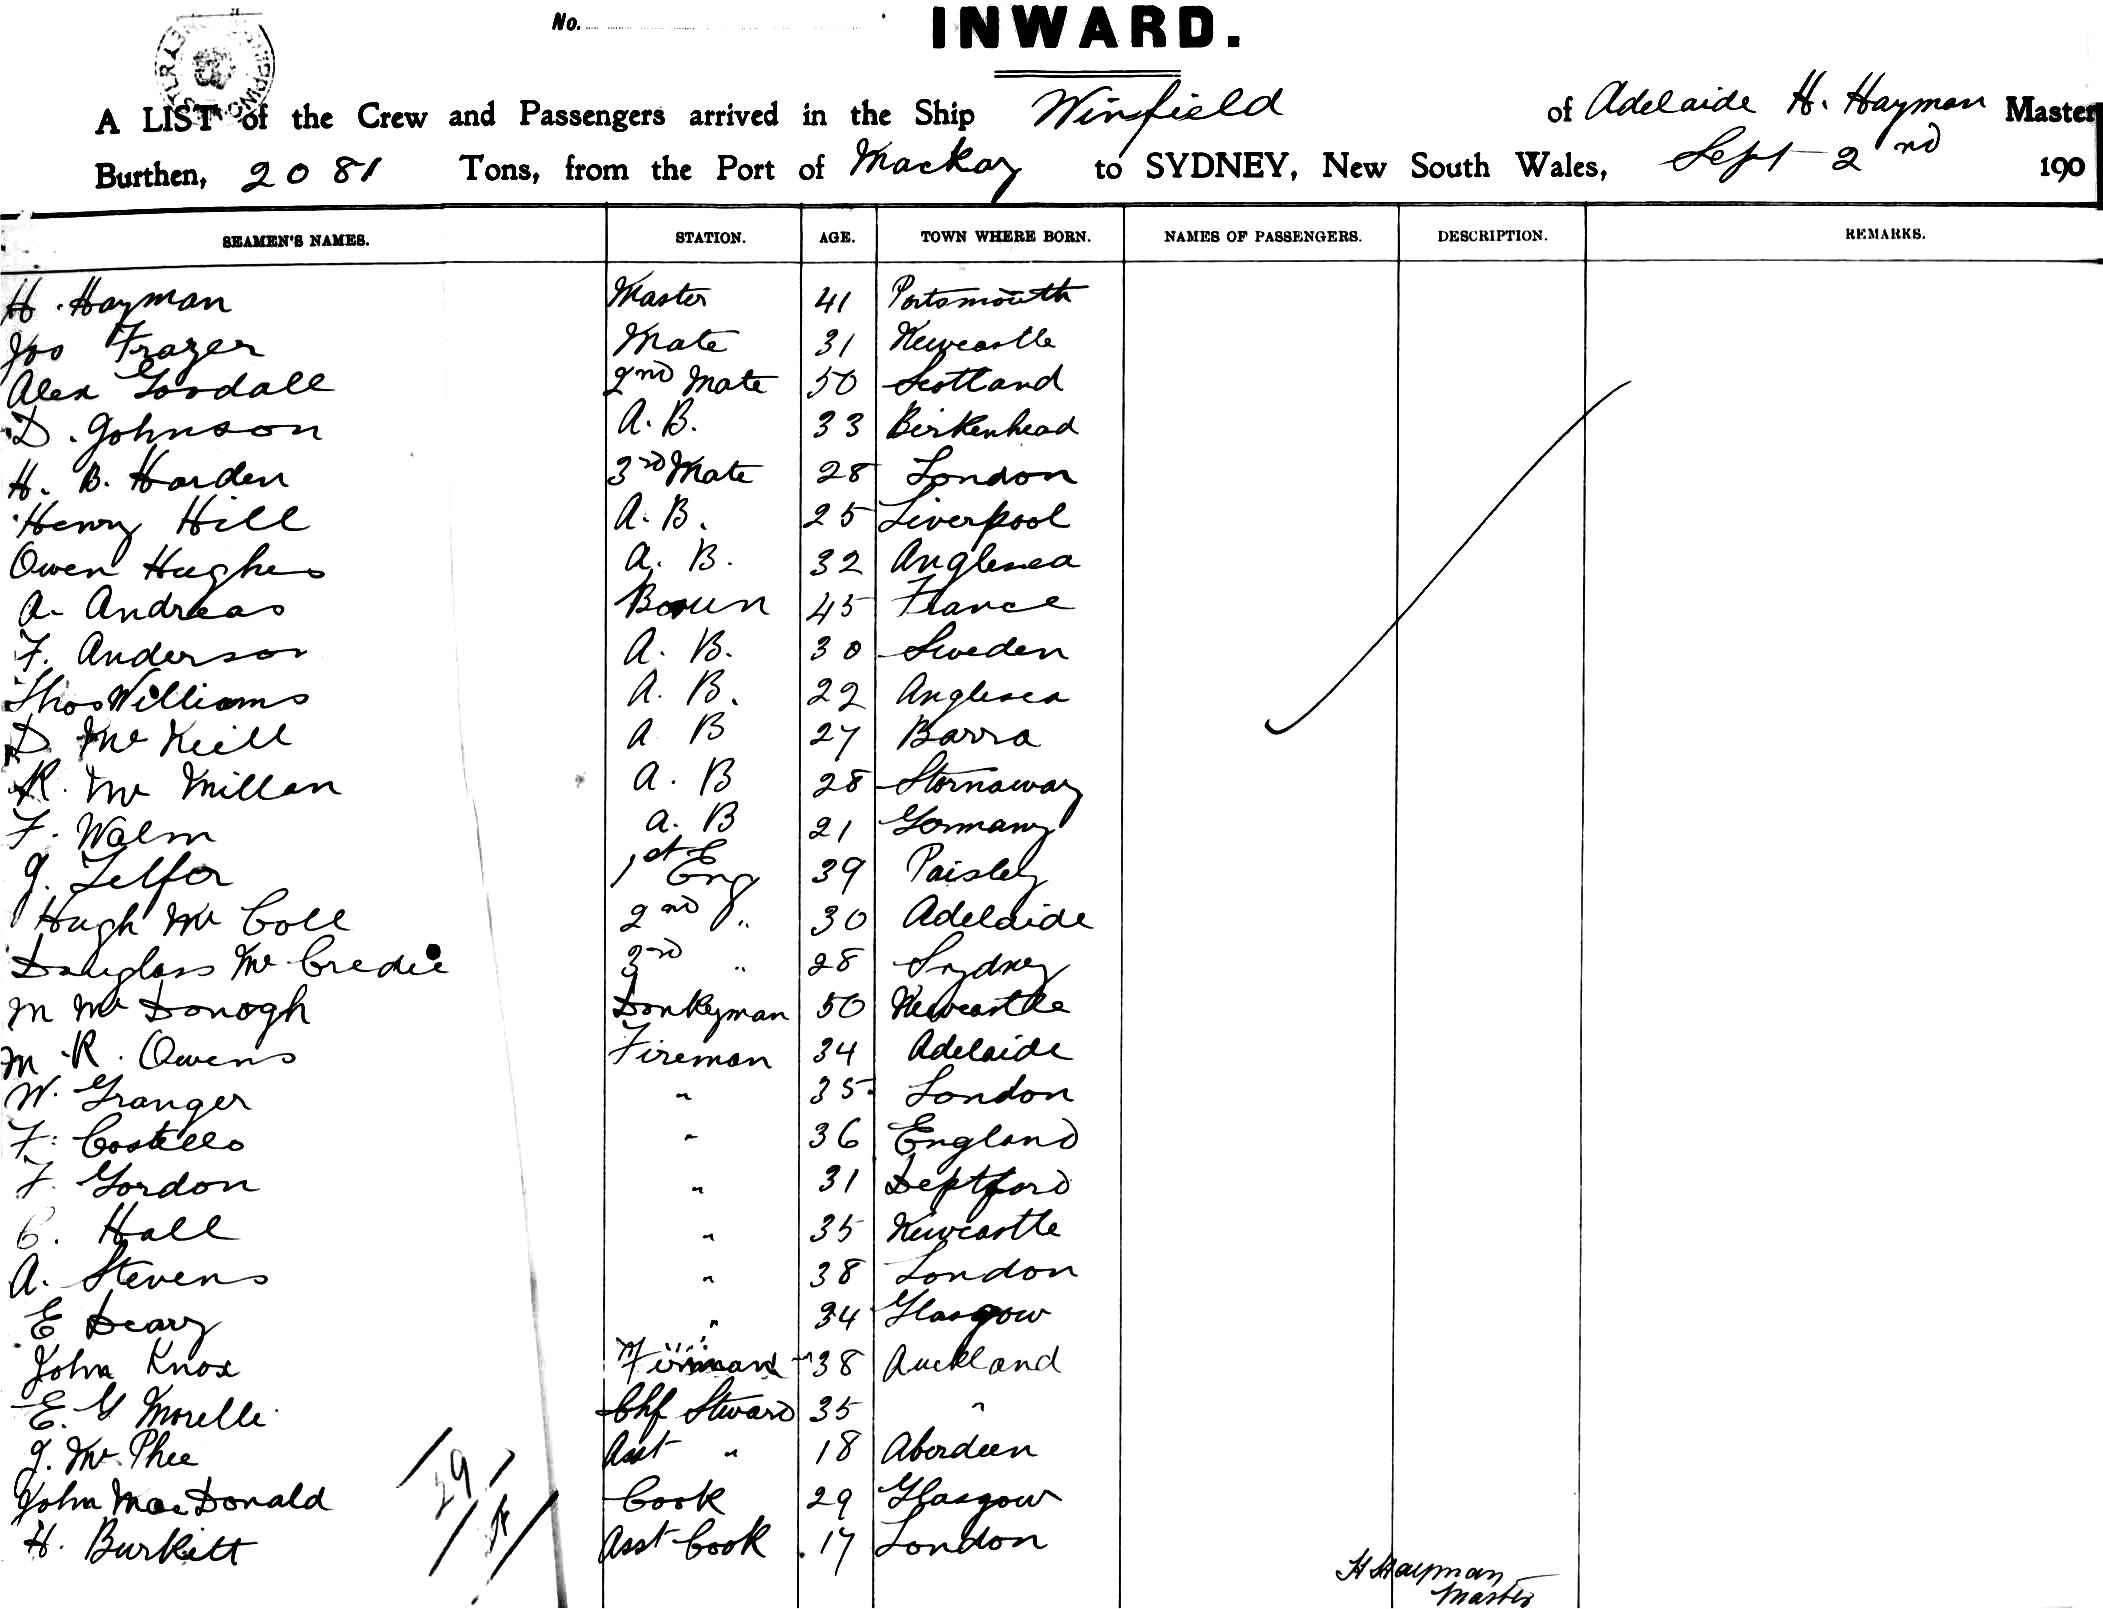 No.
INWARD.
A LIST of the Crew and Passengers arrived in the Ship Winfield of Adelaide H. Hayman Master
Burthen, 2081 Tons, from the Port of Mackay to SYDNEY, New South Wales, Sept 2nd 190
SEAMEN'S NAMES. STATION. AGE. TOWN WHERE BORN. NAMES OF PASSENGERS. DESCRIPTION. REMARKS.
H. Hayman Master 41 Portsmouth
Jos Frazer Mate 31 Newcastle
Alex Goodall 2nd Mate 50 Scotland
D. Johnson A. B. 33 Birkenhead
H. B. Harden 3rd Mate 28 London
Henry Hill A. B. 25 Liverpool
Owen Hughes A. B. 32 Anglesea
A. Andreas Bosun 45 France
F. Anderson A. B. 30 Sweden
Thos Williams A. B. 22 Anglesea
D Mc Neill A B 27 Barra
R. Mc Millan A. B 28 Stornaway
F. Walm A. B 21 Germany
J. Telfer 1st Eng 39 Paisley
Hugh Mc Coll 2nd " 30 Adelaide
Douglass Mc Credie 3rd " 28 Sydney
M Mc Donogh Donkeyman 50 Newcastle
M. R. Owens Fireman 34 Adelaide
W. Granger " 35 London
F. Costello " 36 England
F. Gordon " 31 Deptford
C. Hall " 35 Newcastle
A. Stevens " 38 London
E Deary " 34 Glasgow
John Knox Fireman 38 Auckland
E. G Morelli Chf Steward 35 "
J. Mc Phee Asst " 18 Aberdeen
John MacDonald Cook 29 Glasgow
H. Burkitt Asst Cook 17 London
29
H Hayman
Master